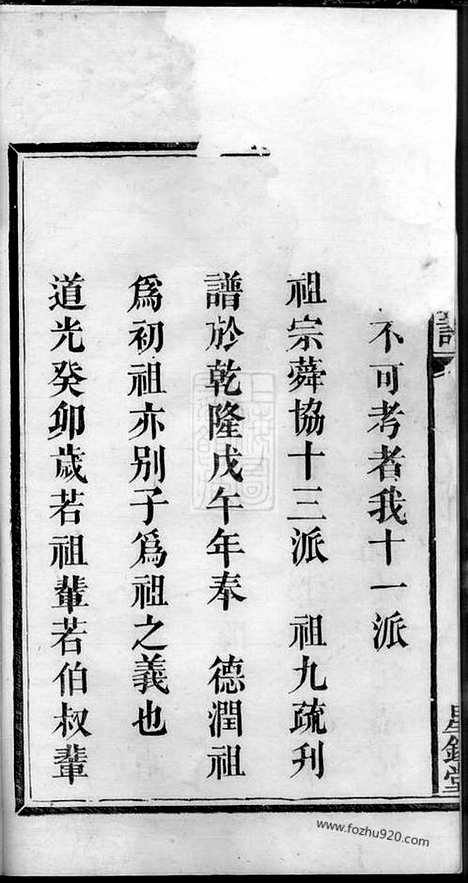 不可考者我十一派
祖宗蕣協十三派　祖九疏刋
譜於乾隆戊午年奉　德潤祖
爲初祖亦别子爲祖之義也
道光癸卯歲若祖輩若伯叔輩
www.fozhu920.com